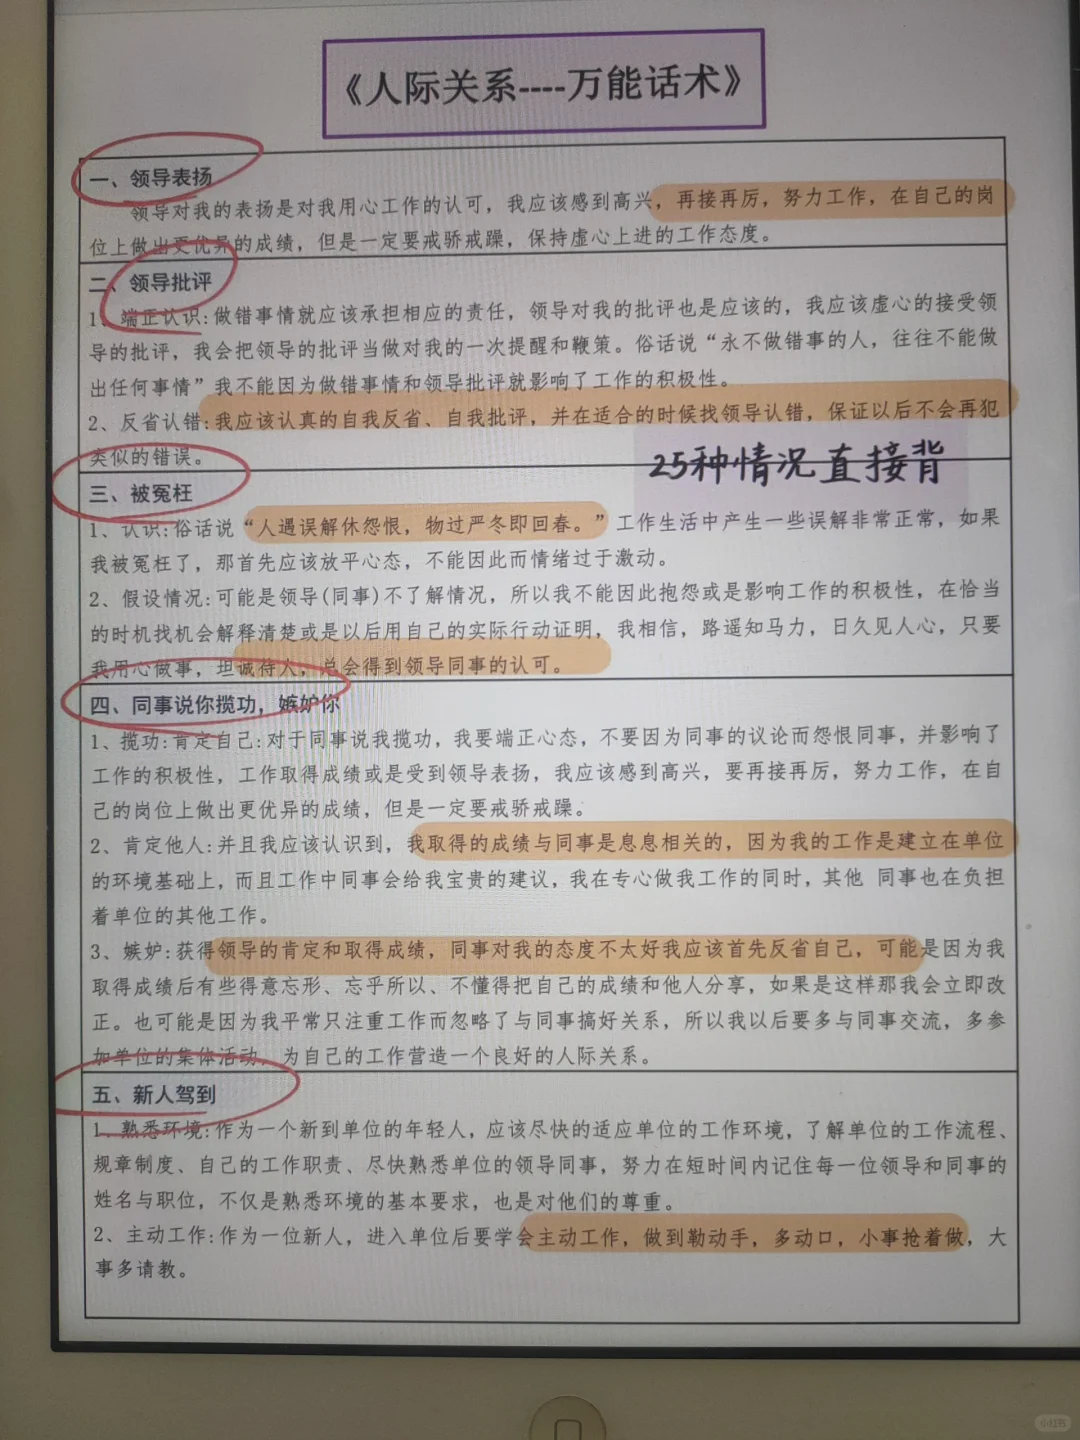 《人际关系----万能话术》
一、领导表扬
领导对我的表扬是对我用心工作的认可，我应该感到高兴，再接再厉，努力工作，在自己的岗
位上做出更优异的成绩，但是一定要戒骄戒躁，保持虚心上进的工作态度。
二、领导批评
1、端正认识:做错事情就应该承担相应的责任，领导对我的批评也是应该的，我应该虚心的接受领
导的批评，我会把领导的批评当做对我的一次提醒和鞭策。俗话说“永不做错事的人，往往不能做
出任何事情”我不能因为做错事情和领导批评就影响了工作的积极性。
2、反省认错:我应该认真的自我反省、自我批评，并在适合的时候找领导认错，保证以后不会再犯
类似的错误。
25种情况直接背
三、被冤枉
1、认识:俗话说“人遇误解休怨恨，物过严冬即回春。”工作生活中产生一些误解非常正常，如果
我被冤枉了，那首先应该放平心态，不能因此而情绪过于激动。
2、假设情况:可能是领导(同事)不了解情况，所以我不能因此抱怨或是影响工作的积极性，在恰当
的时机找机会解释清楚或是以后用自己的实际行动证明，我相信，路遥知马力，日久见人心，只要
我用心做事，坦诚待人，总会得到领导同事的认可。
四、同事说你揽功，嫉妒你
1、揽功:肯定自己:对于同事说我揽功，我要端正心态，不要因为同事的议论而怨恨同事，并影响了
工作的积极性，工作取得成绩或是受到领导表扬，我应该感到高兴，要再接再厉，努力工作，在自
己的岗位上做出更优异的成绩，但是一定要戒骄戒躁。
2、肯定他人:并且我应该认识到，我取得的成绩与同事是息息相关的，因为我的工作是建立在单位
的环境基础上，而且工作中同事会给我宝贵的建议，我在专心做我工作的同时，其他 同事也在负担
着单位的其他工作。
3、嫉妒:获得领导的肯定和取得成绩，同事对我的态度不太好我应该首先反省自己，可能是因为我
取得成绩后有些得意忘形、忘乎所以、不懂得把自己的成绩和他人分享，如果是这样那我会立即改
正。也可能是因为我平常只注重工作而忽略了与同事搞好关系，所以我以后要多与同事交流，多参
加单位的集体活动，为自己的工作营造一个良好的人际关系。
五、新人驾到
1、熟悉环境:作为一个新到单位的年轻人，应该尽快的适应单位的工作环境，了解单位的工作流程、
规章制度、自己的工作职责、尽快熟悉单位的领导同事，努力在短时间内记住每一位领导和同事的
姓名与职位，不仅是熟悉环境的基本要求，也是对他们的尊重。
2、主动工作:作为一位新人，进入单位后要学会主动工作，做到勤动手，多动口，小事抢着做，大
事多请教。
小红书